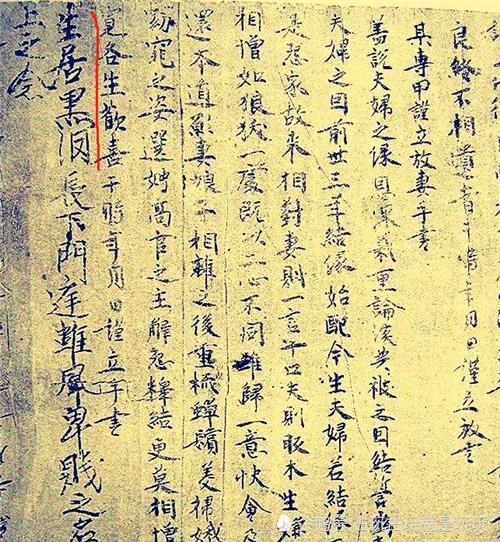 良緣不相遺者于時年月日謹立放書
某專甲謹立放妻手書
蓋說夫婦之緣恩深義重論談共被之因結誓
夫婦之因前世三年結緣始配今生夫婦若結
是怨家故來相對妻則一言十口夫則眅木生嫌
相憎如狼犾一處既以二心不同難歸一意快會及
還本道願妻娘子相離之後重梳蟬鬢美掃娥
窈窕之姿選娉高官之主解怨釋結更莫相憎
寬各生歡喜于時年月日謹立手書
生居黑 長下門 雖居卑賤之名
上之念